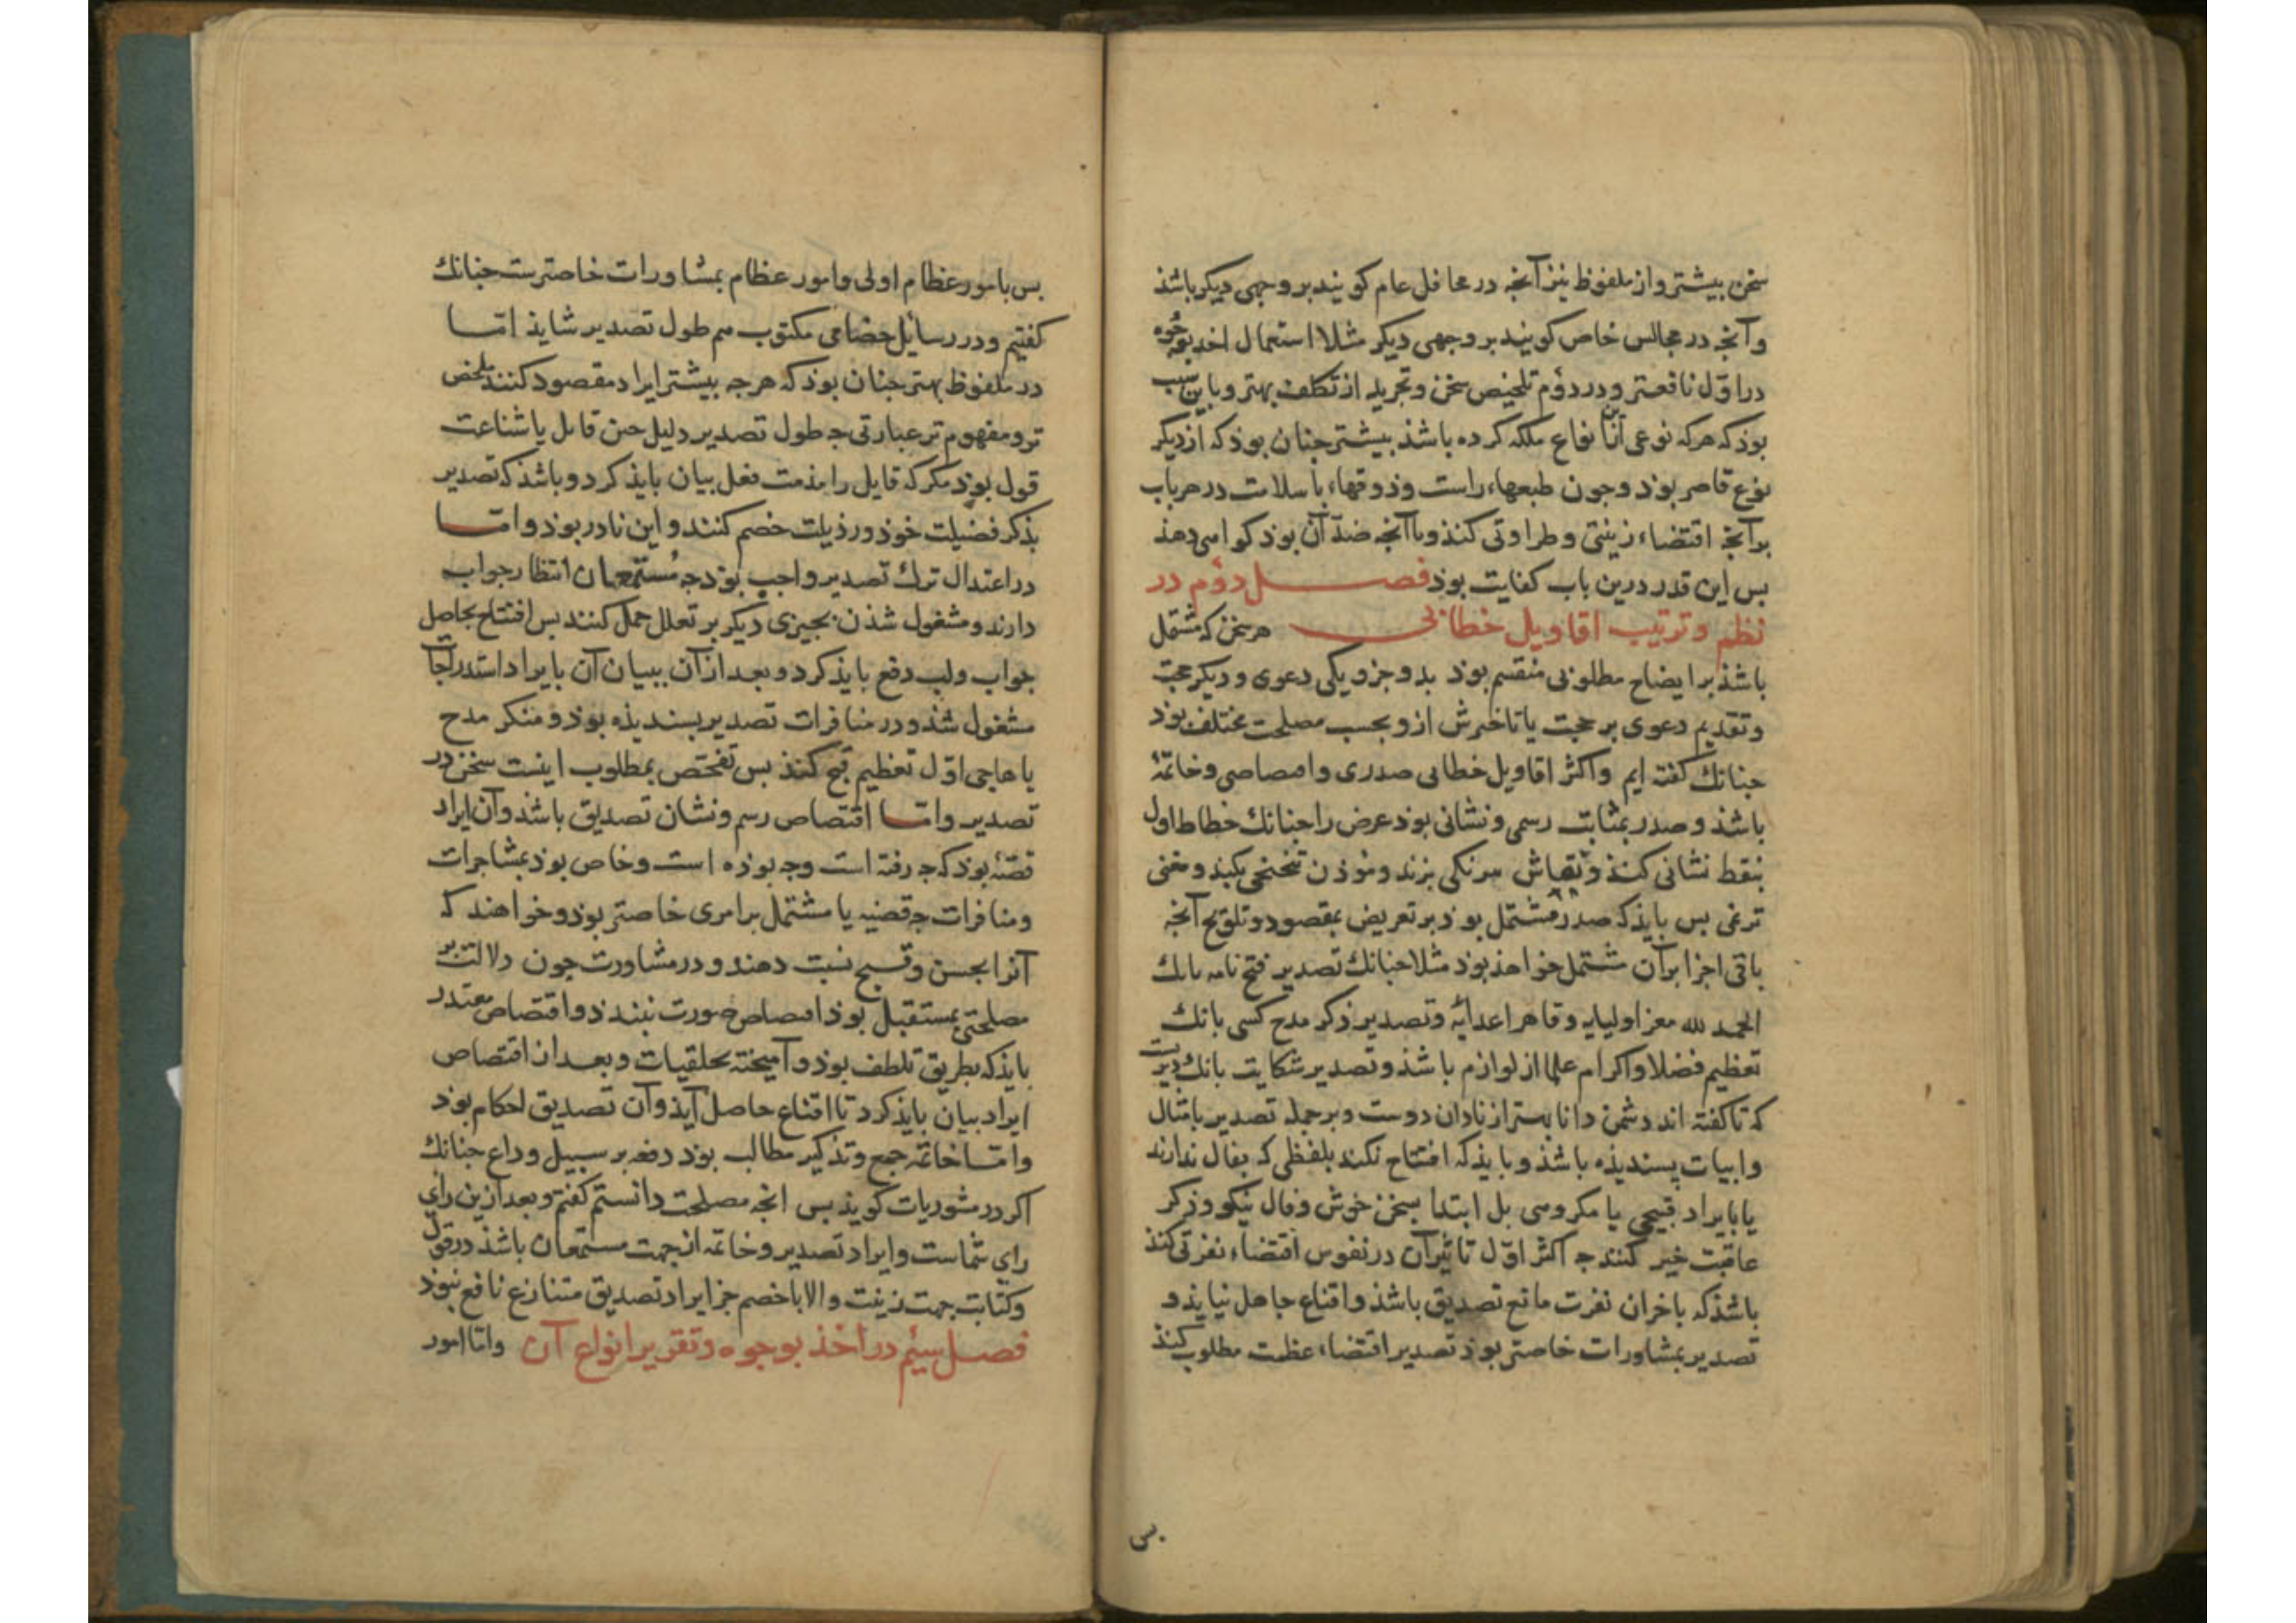 سخن بیشتر و از ملفوظ نیز آنجه در محافل عام کویند بر وجهی دیکر باشذ
و آنجه در مجالس خاص کویند بر وجهی دیکر مثلا استعمال اخذ بوجوه
در اوّل نافعتر و در دوّم تلخیص سخن و تجرید از تکلف بهتر و باین سبب
بوذ که هرکه نوعی ازین انواع ملکه کرده باشذ بیشتر جنان بوذ که از دیکر
نوع قاصر بوذ و جون طبعهاء راست و ذوقهاء باسلامت در هر باب
بر آنجه اقتضاء زینتی و طراوتی کنذ و با آنجه ضدّ آن بوذ کواهی دهذ
بس این قدر درین باب کفایت بوذ فصل دوّم در
نظم و ترتیب اقاویل خطابی هر سخن که مشتمل
باشذ بر ایضاح مطلوبی منقسم بوذ بدو جزو یکی دعوی و دیکر حجت
و تقدیم دعوی بر حجت یا تاخیرش ازو بحسب مصلحت مختلف بوذ
جنانك کفته ایم و اکثر اقاویل خطابی صدری و اقتصاصی و خاتمهٔ
باشذ و صدر بمثابت رسمی و نشانی بوذ غرض را جنانك خطاط اول
بنقط نشانی کنذ و نقاش بیرنکی بزند و موذن تنحنحی بکند و مغنی
ترنمی بس بایذ که صدر مشتمل بوذ بر تعریض بمقصود و تلویح آنجه
باقی اجزا بر آن مشتمل خواهذ بوذ مثلا جنانك تصدیر فتح نامه بانك
الحمد لله معز اولیایه و قاهر اعدایه و تصدیر ذکر مدح کسی بانك
تعظیم فضلا و اکرام علما از لوازم باشذ و تصدیر شکایت بانك دیرست
که تا کفته اند دشمن دانا بهتر از نادان دوست و بر جمله تصدیر بامثال
و ابیات پسندیذه باشذ و بایذ که افتتاح نکند بلفظی که بفال ندارند
یا بایراد قبیحی یا مکروهی بل ابتدا بسخن خوش و فال نیکو و ذکر
عاقبت خیر کنند جه اکثر اوّل تاثیر آن در نفوس اقتضاء نفرتی کند
باشذ که باخر آن نفرت مانع تصدیق باشذ و اقناع حاصل نیایذ و
تصدیر بمشاورات خاصتر بوذ تصدیر اقتضاء عظمت مطلوب کند
بس
بس بامور عظام اولی و امور عظام بمشاورات خاصترست جنانك
کفتیم و در رسایل خصامی مکتوب هم طول تصدیر شایذ امّا
در ملفوظ بهتر جنان بوذ که هرجه بیشتر ایراد مقصود کنند ملخص
تر و مفهوم تر عبارتی جه طول تصدیر دلیل جبن قایل یا شناعت
قول بوذ مکر که قایل را مذمت فعل بیان بایذ کرد و باشذ که تصدیر
بذکر فضیلت خوذ و رذیلت خصم کنند و این نادر بوذ و امّا
در اعتدال ترك تصدیر واجب بوذ جه مستمعان انتظار جواب
دارند و مشغول شذن بجیزی دیکر بر تعلل حمل کنند بس افتتاح بحاصل
جواب و لب دفع بایذ کرد و بعد از آن ببیان آن بایراد استدراجات
مشغول شذ و در منافرات تصدیر بسندیذه بوذ و منکر مدح
یا هاجی اوّل تعظیم قبح کنذ بس تفحص بمطلوب اینست سخن در
تصدیر و امّا اقتصاص رسم و نشان تصدیق باشذ و آن ایراد
قصهٔ بوذ که جه رفته است و جه بوذه است و خاص بوذ بمشاجرات
و منافرات جه قضیه یا مشتمل بر امری خاصتر بوذ و خواهند که
آنرا بحسن و قبیح نسبت دهند و در مشاورت جون دلالت بر
مصلحتی بمستقبل بوذ اقتصاص صورت نبندذ و اقتصاص معتدر
بایذ که بطریق تلطف بوذ و آمیخته بخلقیات و بعد از اقتصاص
ایراد بیان بایذ کرد تا اقناع حاصل آیذ و آن تصدیق احکام بوذ
و امّا خاتمه جمع و تذکیر مطالب بوذ دفعه بر سبیل وداع جنانك
اکر در مشوریات کویذ بس انجه مصلحت دانستم کفتم و بعد ازین رای
رای شماست و ایراد تصدیر و خاتمه از جهت مستمعان باشذ در قول
و کتابت جهت زینت و الا با خصم جز ایراد تصدیق متنازع نافع نبوذ
فصل سیم در اخذ بوجوه و تقریر انواع آن و امّا امور